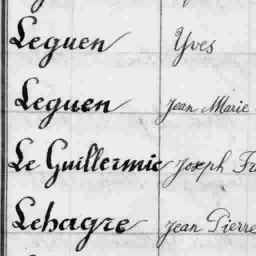 Leguen Yves
Leguen Jean Marie
Le Guillermic Joseph Fr
Lehagre Jean Pierre